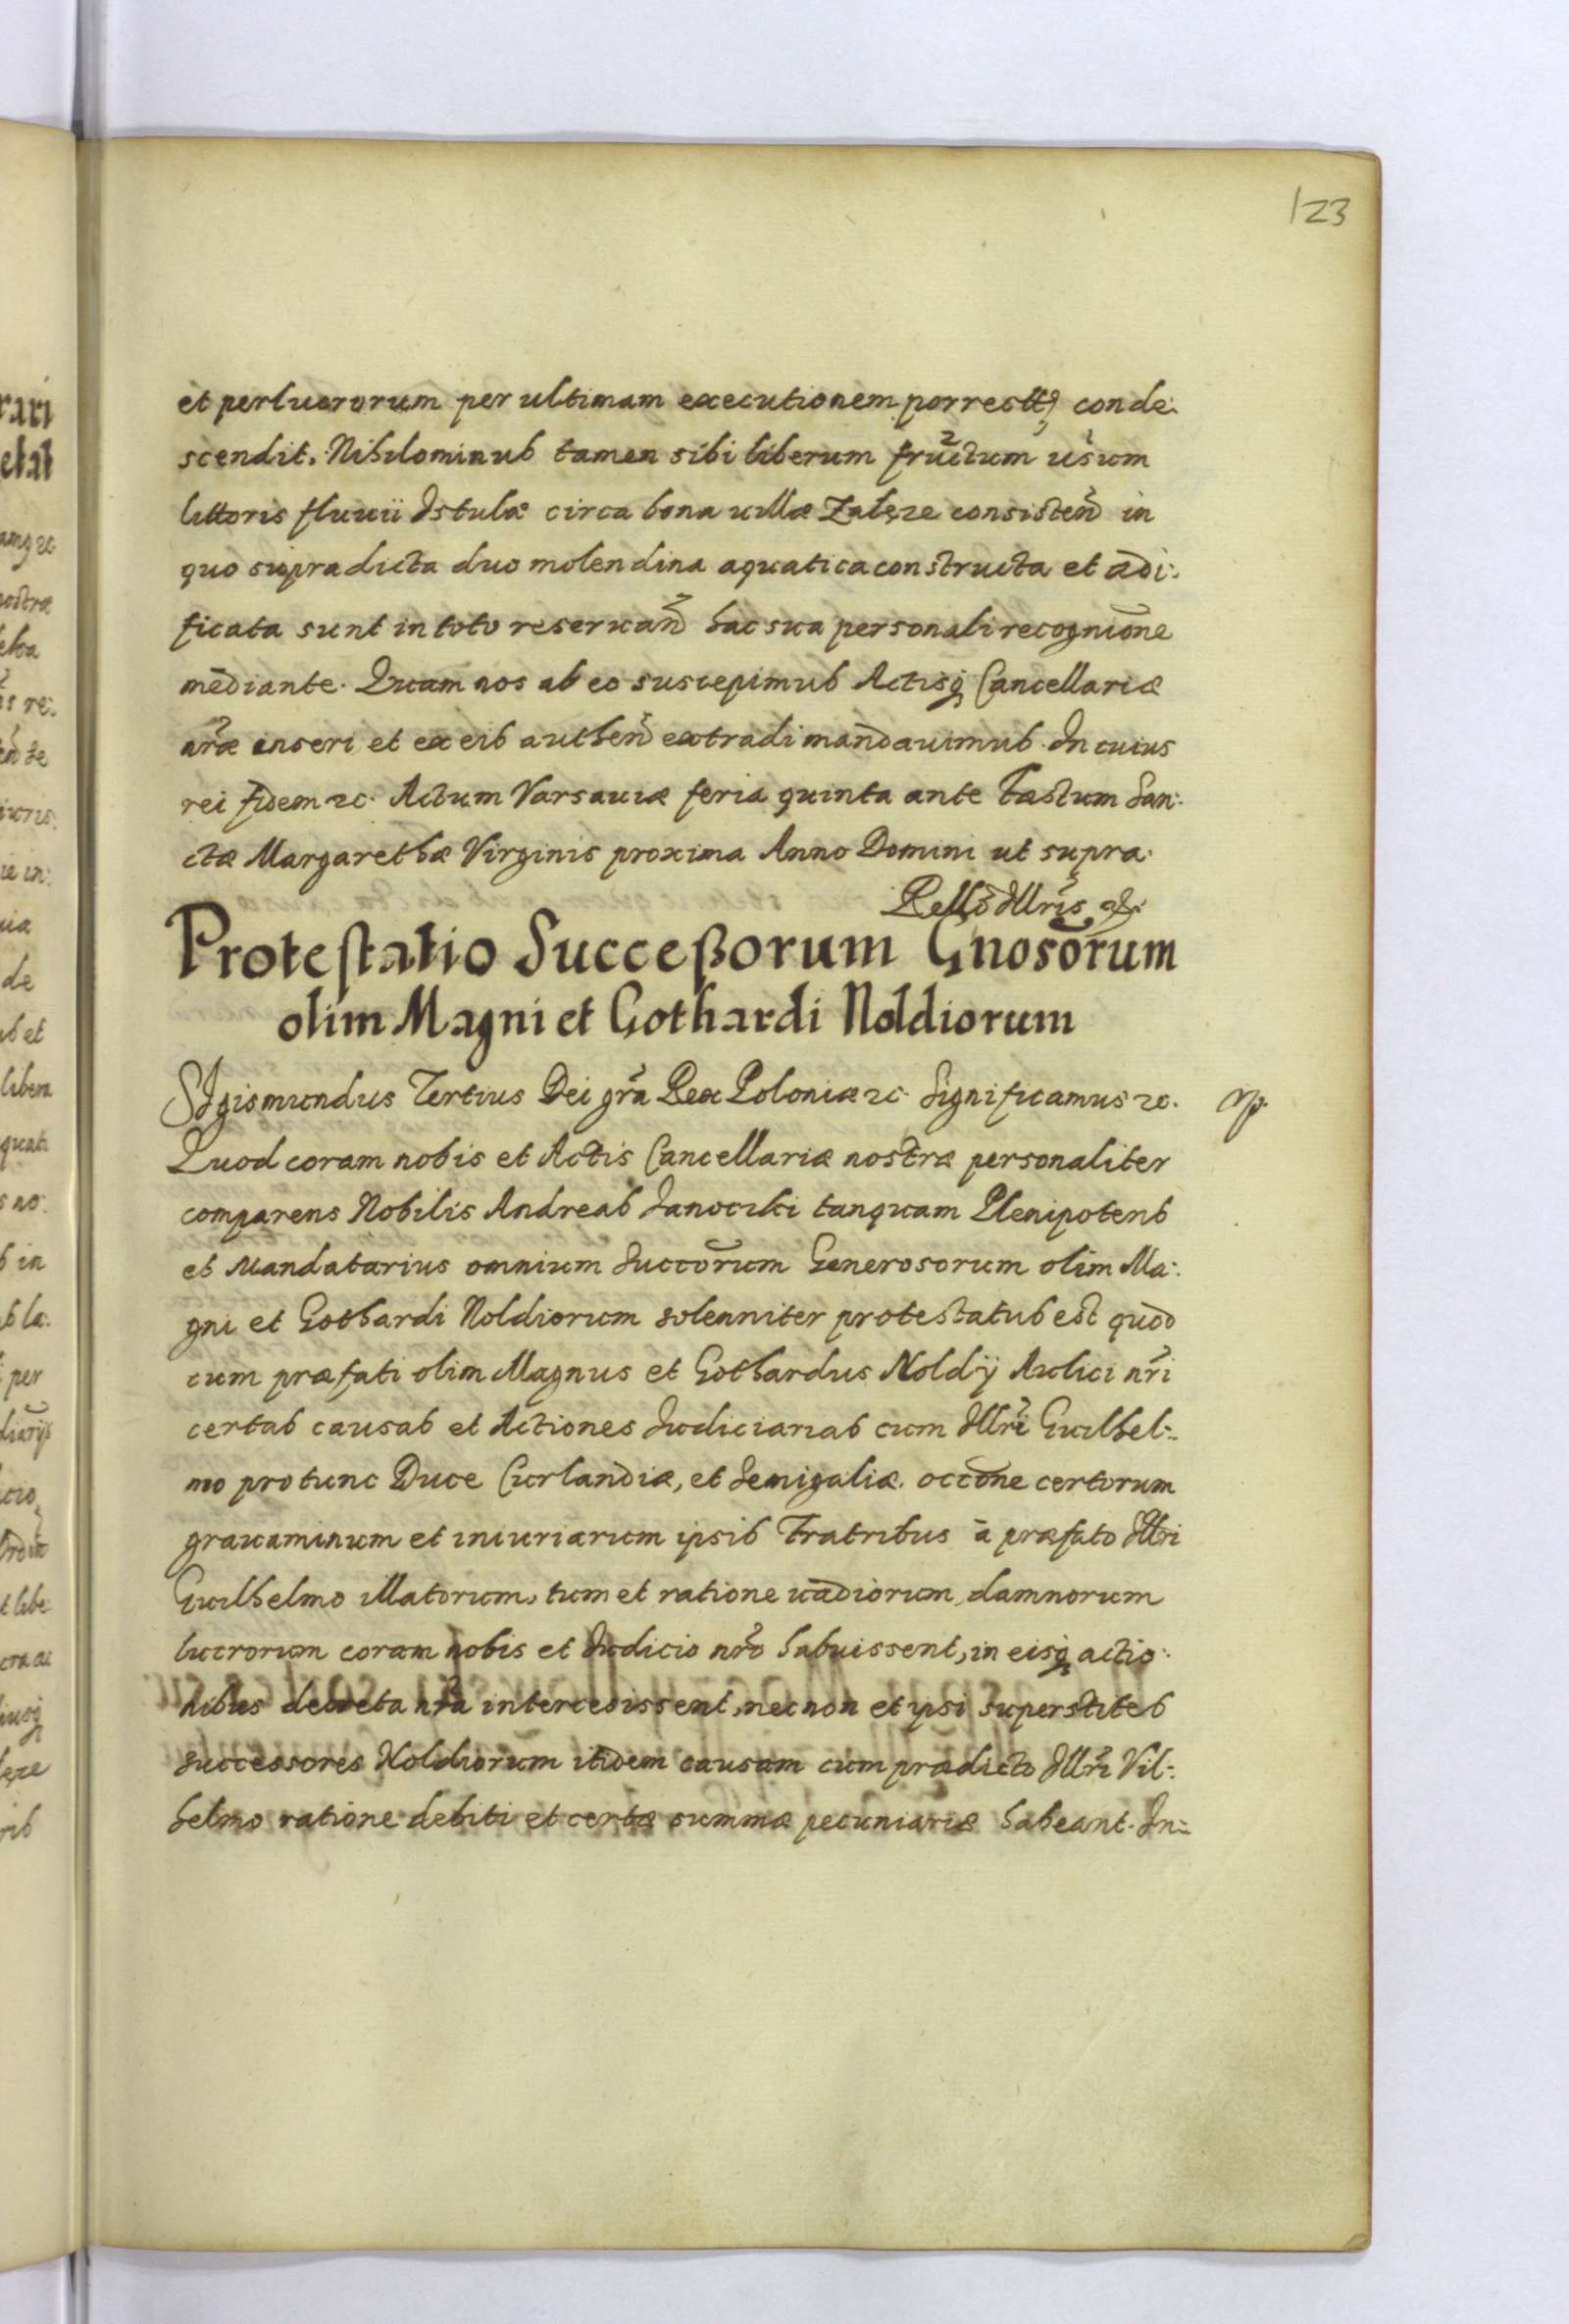 123
et perlucrorum per ultimam executionem porrectt conde:
scendit. Nihilominus tamen sibi liberum fructum usum
littoris fluuii Istulæ circa bona uillæ Zalęze consisteñ in
quo supradicta duo molendina aquatica constructa et ædi:
ficata sunt in toto reseruañ hac sua personali recognōne
mediante. Quam nos ab eo suscepimus Actisq Cancellariæ
nr̃æ inseri et ex eis autheñ extradi mandauimus. In cuius
rei fidem ꝛc. Actum Varsauiæ feria quinta ante Fæstum San:
ctæ Margarethæ Virginis proxima Anno Domini ut supra.
Rello Illris
Protestatio Succeßorum Gnosōrum
olim Magni et Gothardi Noldiorum
SIgismundus Tertius Dei gr̃a Rex Poloniæ ꝛc. Significamus ꝛc.
Quod coram nobis et Actis Cancellariæ nostræ personaliter
comparens Nobilis Andreas Janociki tanquam Plenipotens
et Mandatarius omnium Succōrum Generosorum olim Ma:
gni et Gothardi Noldiorum solenniter protestatus est quod
cum præfati olim Magnus et Gothardus Noldÿ Aulici nr̃i
certas causas et Actiones Judiciarias cum Illr̃i Guilhel:
mo protunc Duce Curlandiæ, et Semigaliæ. occōne certorum
grauaminum et iniuriarum ipsis Fratribus à præfato Illri
Guilhelmo illatorum, tum et ratione uadiorum damnorum
lucrorum coram nobis et Judicio nr̃o habuissent, in eisq actio:
nibus decreta nr̃a intercesissent, necnon et ipsi superstites
successores Noldiorum itidem causam cum prædicto Illr̃i Vil:
helmo ratione debiti et certæ summæ pecuniariæ habeant. In: